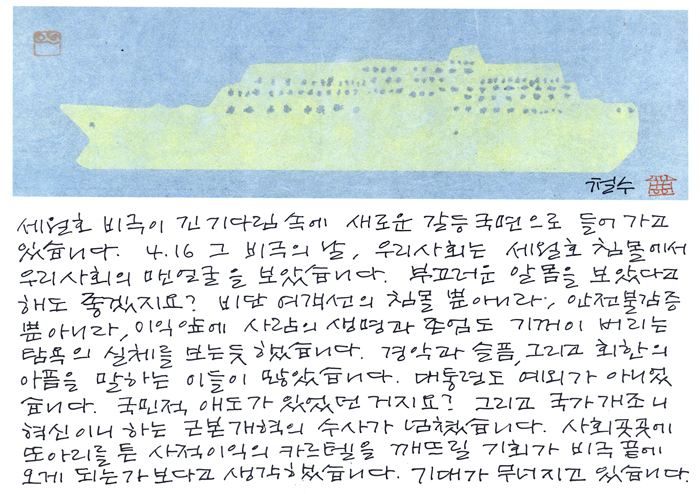 철수
세월호 비극이 긴 기다림 속에 새로운 갈등국면으로 들어가고
있습니다. 4.16 그 비극의 날, 우리사회는 세월호 침몰에서
우리사회의 맨얼굴을 보았습니다. 부끄러운 알몸을 보았다고
해도 좋겠지요? 비단 여객선의 침몰 뿐아니라, 안전불감증
뿐아니라, 이익앞에 사람의 생명과 존엄도 기꺼이 버리는
탐욕의 실체를 보는듯 했습니다. 경악과 슬픔, 그리고 회한의
아픔을 말하는 이들이 많았습니다. 대통령도 예외가 아니었
습니다. 국민적 애도가 있었던 거지요? 그리고 국가개조니
혁신이니 하는 근본개혁의 수사가 넘쳤습니다. 사회곳곳에
또아리를 튼 사적이익의 카르텔을 깨뜨릴 기회가 비극 끝에
오게 되는가보다고 생각했습니다. 기대가 무너지고 있습니다.